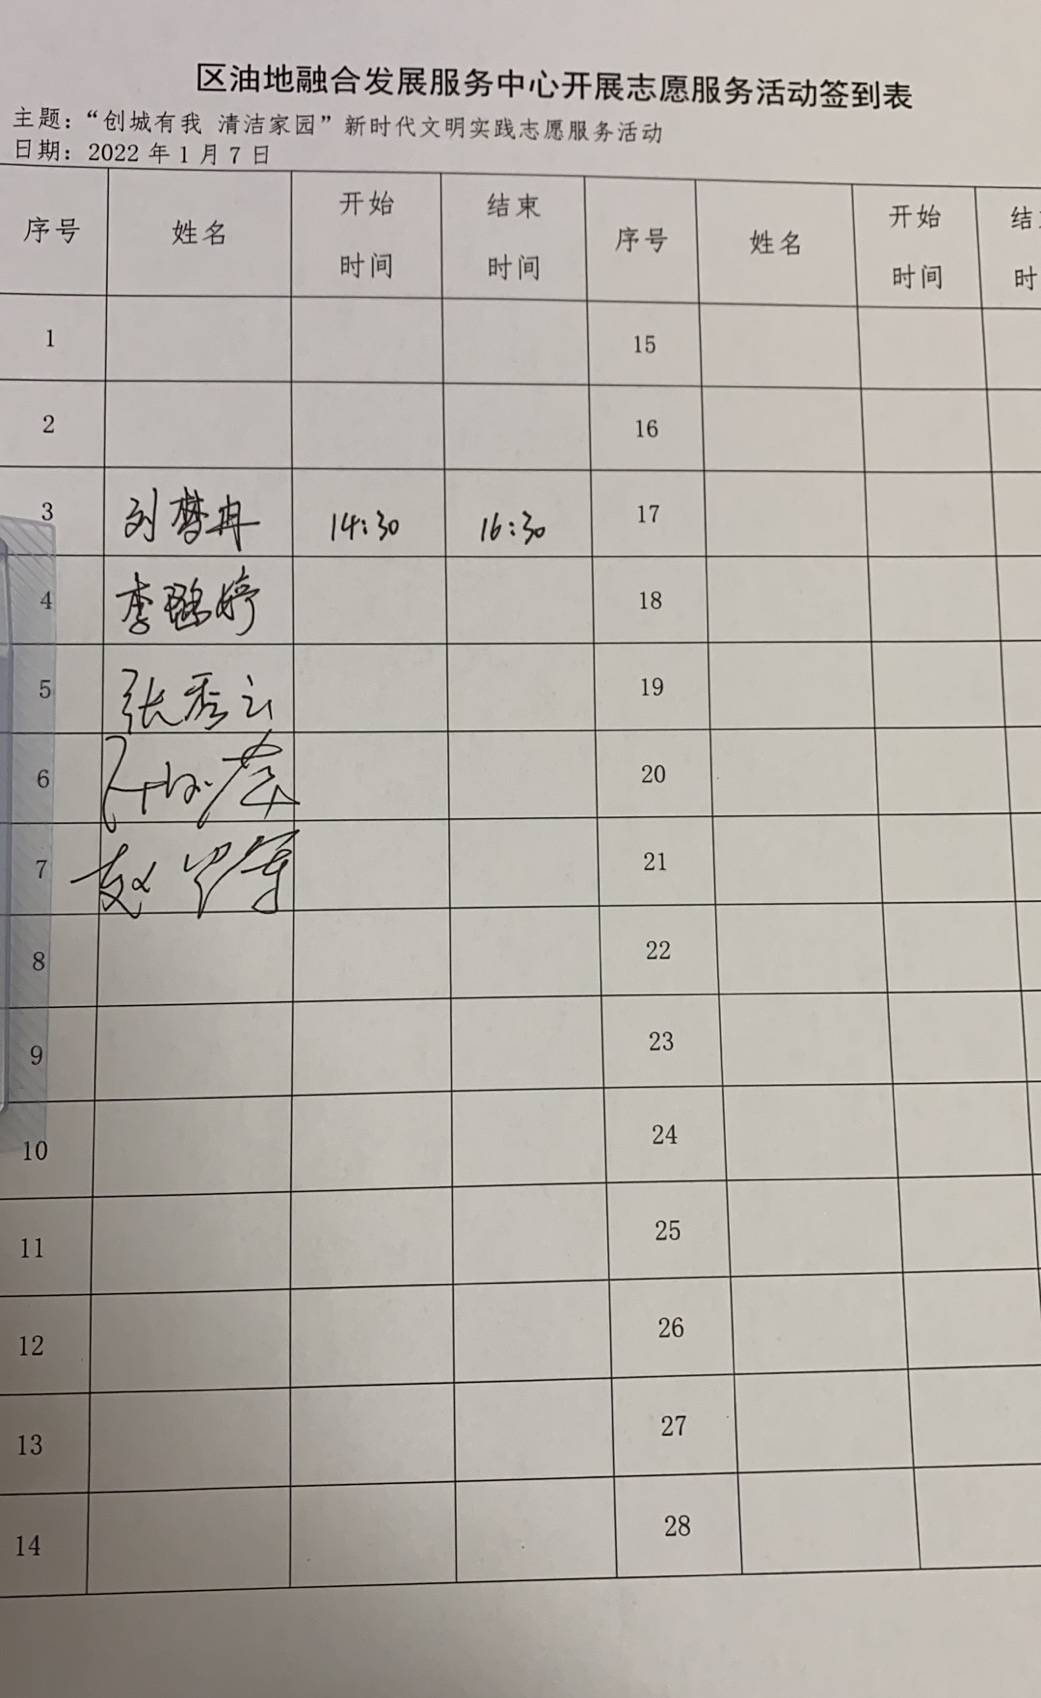 区油地融合发展服务中心开展志愿服务活动签到表
主题：“创城有我 清洁家园”新时代文明实践志愿服务活动
日期：2022 年 1 月 7 日
序号 姓名 开始时间 结束时间 序号 姓名 开始时间 结 时
1 15
2 16
3 刘梦冉 14:30 16:30 17
4 李 婷 18
5 张秀云 19
6 20
7 赵 21
8 22
9 23
10 24
11 25
12 26
13 27
14 28